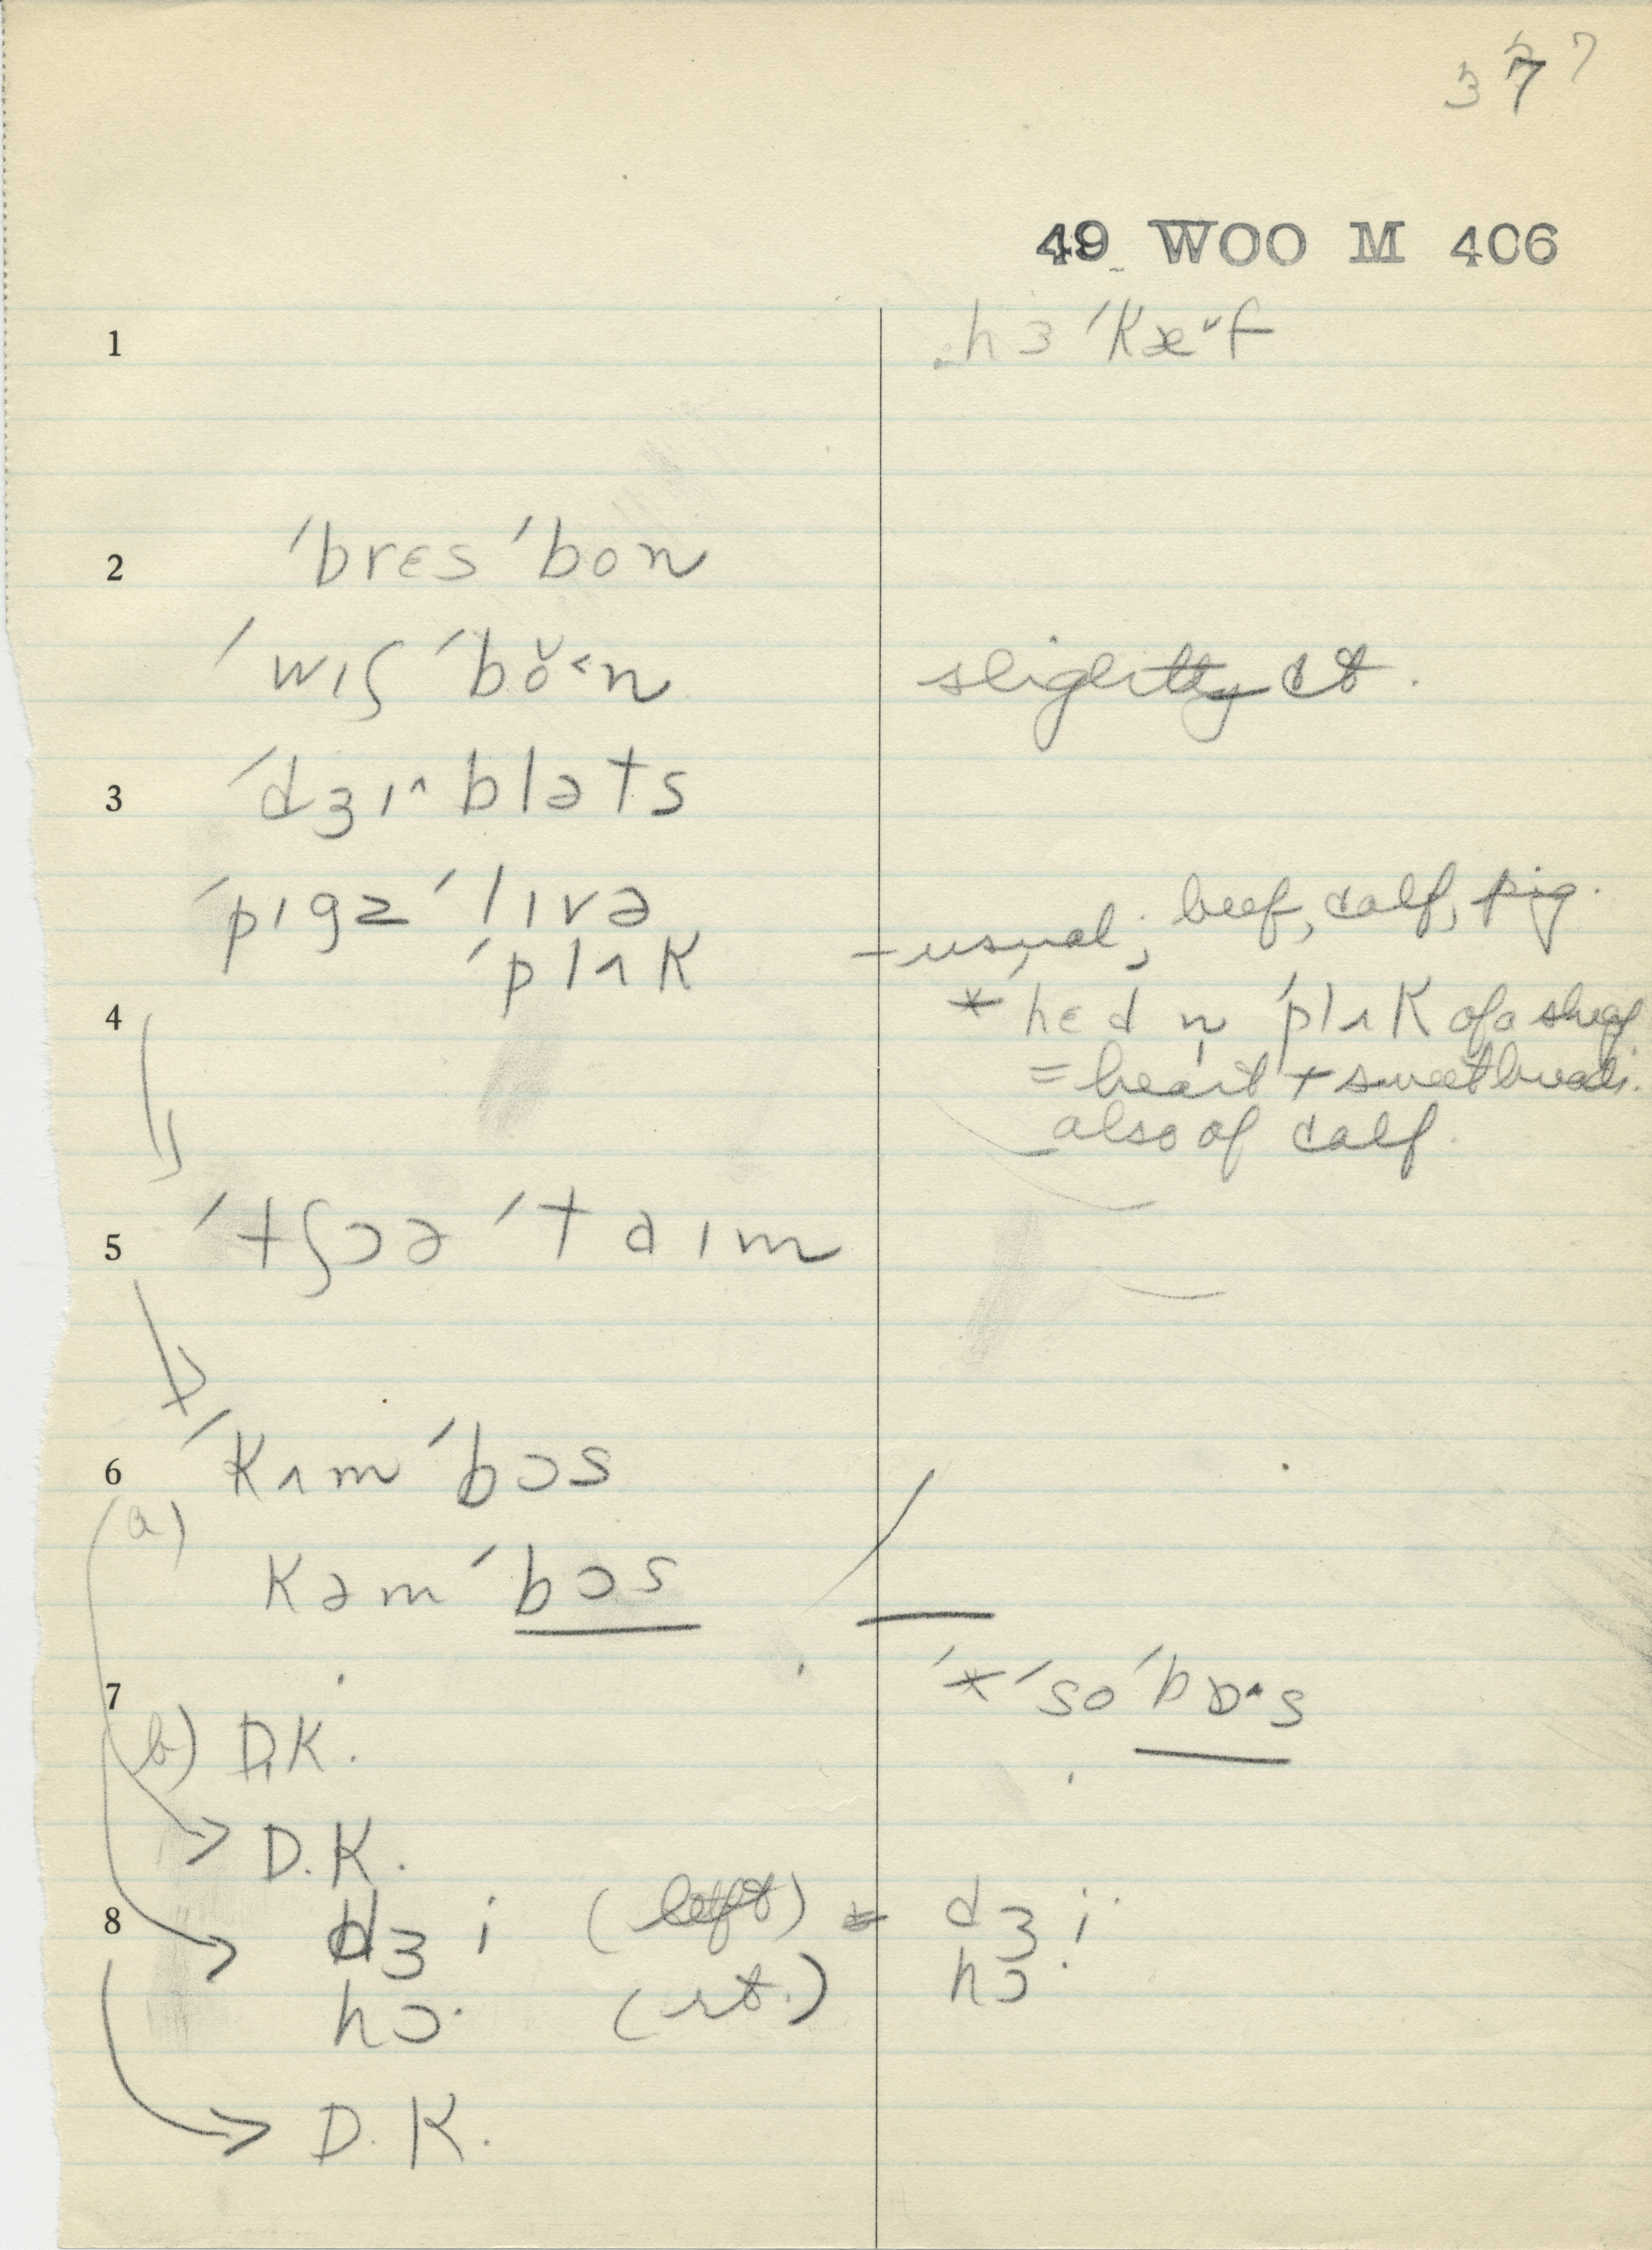 377
49 WOO M 406
1 hɜ ˈKæ˅f
2 ˈbrɛs ˈbon
ˈwɪʃ ˈbŏ˂n slightly ct.
3 ˈdʒɪ^bləts
ˈpɪgz ˈlɪvə - usual; beef, calf, pig.
ˈplʌK
4 * hɛd n̩ ˈplʌK of a sheep
= heart + sweetbreads.
also of calf.
5 ˈtʃɔə ˈtaɪm
6 ˈKʌm ˈbɔs
(a)
Kəm ˈbɔs
7 ˈ*ˈso ˈbɒ·s
(b) D.K.
D.K.
8 dʒi (left) * dʒi
hɔ· (rt.) hɔ·
D.K.